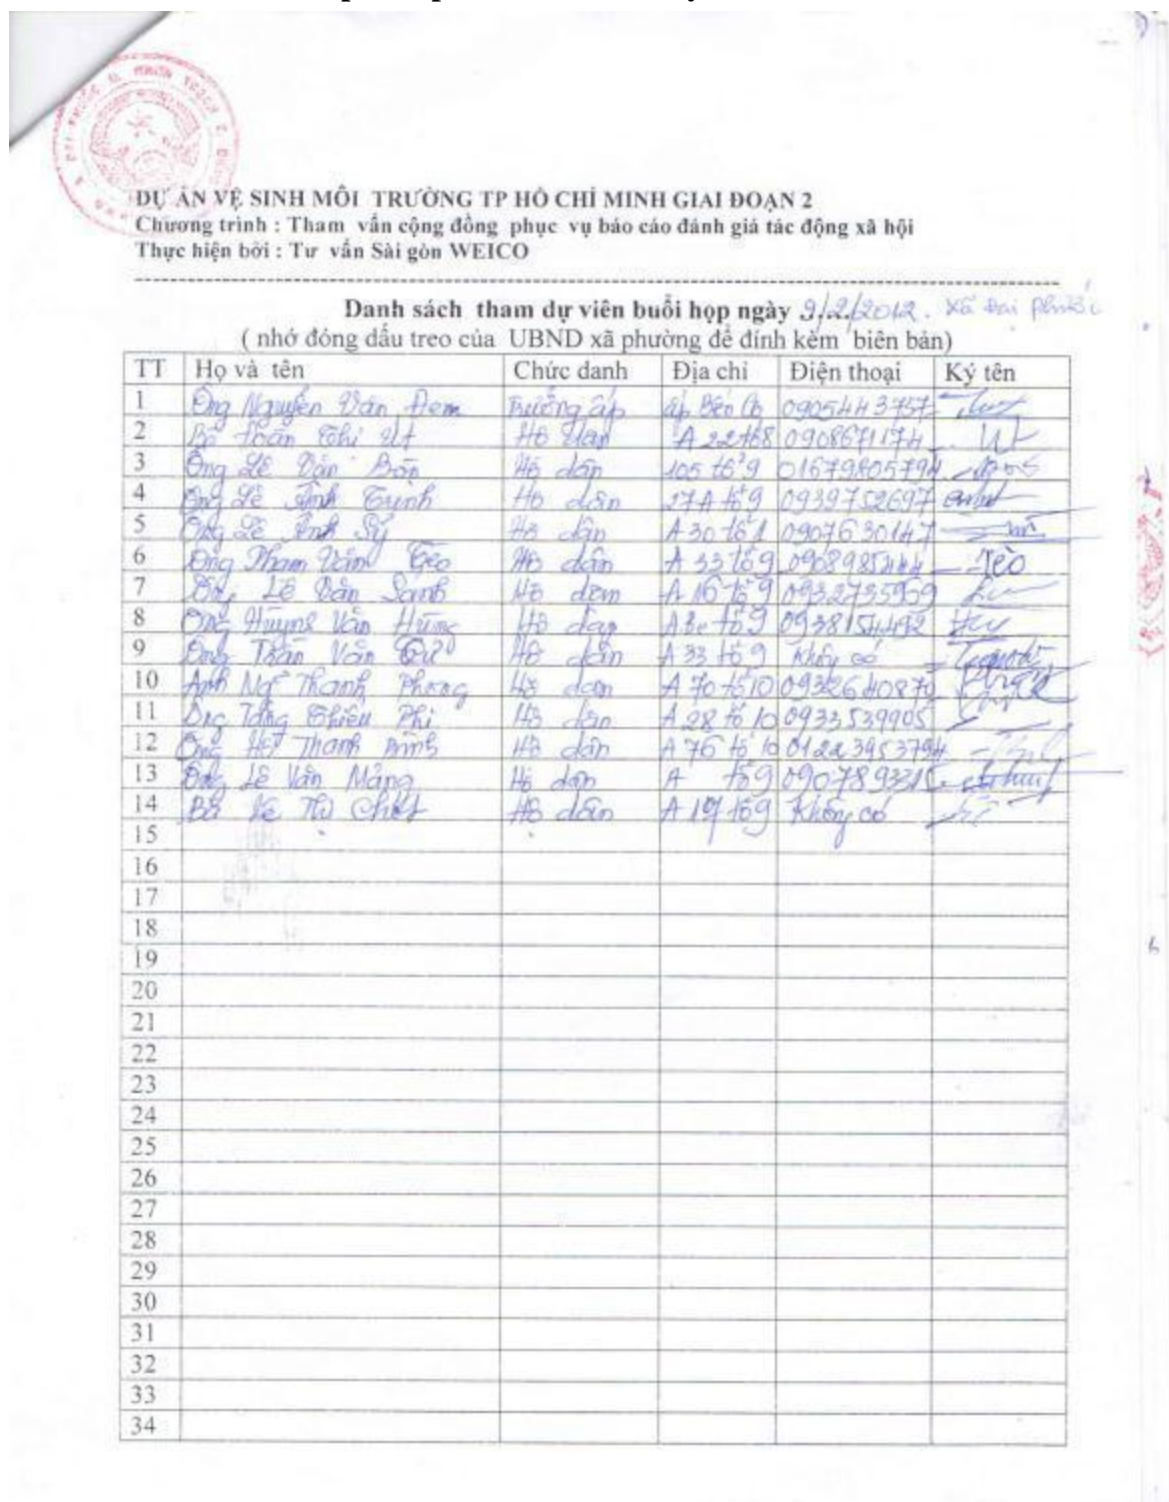 DỰ ÁN VỆ SINH MÔI TRƯỜNG TP HỒ CHÍ MINH GIAI ĐOẠN 2
Chương trình : Tham vấn cộng đồng phục vụ báo cáo đánh giá tác động xã hội
Thực hiện bởi : Tư vấn Sài gòn WEICO
Danh sách tham dự viên buổi họp ngày 9/2/2012. Xã Đại Phước
( nhớ đóng dấu treo của UBND xã phường để đính kèm biên bản)
TT Họ và tên Chức danh Địa chỉ Điện thoại Ký tên
1 Ông Nguyễn Văn Đem Trưởng ấp ấp Bến Cộ 0905443757
2 Bà Thị Út Hộ dân 0908671174 Út
3 Ông Lê Văn Bốn Hộ dân 105 tổ 9
4 Ông Lê Anh Trịnh Hộ dân 27A tổ 9 0939752697
5 Ông Lê Anh Sỹ Hộ dân A 30 tổ 1 0907630147
6 Ông Phạm Văn Tèo Hộ dân A 33 tổ 9 Tèo
7 Ông Lê Văn Sanh Hộ dân A 16 tổ 9 0932735969
8 Ông Huỳnh Văn Hùng Hộ dân tổ 9
9 Ông Trần Văn Hộ dân A 33 tổ 9 Không có
10 Anh Ngô Thanh Phong Hộ dân A 70 tổ 10
11 Ông Tăng Thiếu Phi Hộ dân A 28 tổ 10 0933539905
12 Ông Thanh Hộ dân A 76 tổ 10
13 Ông Lê Văn Mảng Hộ dân A tổ 9
14 Bà Thị Chót Hộ dân A 19 tổ 9 Không có
15
16
17
18
19
20
21
22
23
24
25
26
27
28
29
30
31
32
33
34